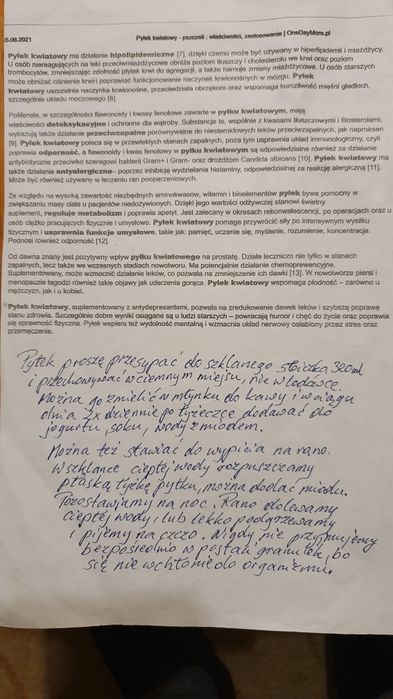 5.06.2021 Pyłek kwiatowy - pszczeli : właściwości, zastosowanie | OneDayMore.pl
Pyłek kwiatowy ma działanie hipolipidemiczne [7], dzięki czemu może być używany w hiperlipidemii i miażdżycy.
U osób niereagujących na leki przeciwmiażdżycowe obniża poziom tłuszczy i cholesterolu we krwi oraz poziom
trombocytów, zmniejszając zdolność płytek krwi do agregacji, a także hamuje zmiany miażdżycowe. U osób starszych
może obniżać ciśnienie krwi i poprawiać funkcjonowanie naczynek krwionośnych w mózgu. Pyłek
kwiatowy uszczelnia naczynka krwionośne, przeciwdziała obrzękom oraz wspomaga kurczliwość mięśni gładkich,
szczególnie układu moczowego [8].
Polifenole, w szczególności flawonoidy i kwasy fenolowe zawarte w pyłku kwiatowym, mają
właściwości detoksykacyjne i ochronne dla wątroby. Substancje te, wspólnie z kwasami tłuszczowymi i fitosterolami,
wykazują także działanie przeciwzapalne porównywalne do niesteroidowych leków przeciwzapalnych, jak naproksen
[9]. Pyłek kwiatowy poleca się w przewlekłych stanach zapalnych, poza tym usprawnia układ immunologiczny, czyli
poprawia odporność, a flawonoidy i kwas fenolowy w pyłku kwiatowym są odpowiedzialne również za działanie
antybiotyczne przeciwko szeregowi bakterii Gram+ i Gram- oraz drożdżom Candida albicans [10]. Pyłek kwiatowy ma
także działanie antyalergiczne– poprzez inhibicję wydzielania histaminy, odpowiedzialnej za reakcję alergiczną [11].
Może być również używany w leczeniu ran pooparzeniowych.
Ze względu na wysoką zawartość niezbędnych aminokwasów, witamin i bioelementów pyłek bywa pomocny w
zwiększaniu masy ciała u pacjentów niedożywionych. Dzięki jego wartości odżywczej stanowi świetny
suplement, reguluje metabolizm i poprawia apetyt. Jest zalecany w okresach rekonwalescencji, po operacjach oraz u
osób ciężko pracujących fizycznie i umysłowo. Pyłek kwiatowy pomaga przywrócić siły po intensywnym wysiłku
fizycznym i usprawnia funkcje umysłowe, takie jak: pamięć, uczenie się, myślenie, rozumienie, koncentracja.
Podnosi również odporność [12].
Od dawna znany jest pozytywny wpływ pyłku kwiatowego na prostatę. Działa leczniczo nie tylko w stanach
zapalnych, lecz także we wczesnych stadiach nowotworu. Ma potencjalnie działanie chemoprewencyjne.
Suplementowany, może wzmocnić działanie leków, co pozwala na zmniejszenie ich dawki [13]. W nowotworze piersi i
menopauzie łagodzi również takie objawy jak uderzenia gorąca. Pyłek kwiatowy wspomaga płodność – zarówno u
mężczyzn, jak i u kobiet.
Pyłek kwiatowy, suplementowany z antydepresantami, pozwala na zredukowanie dawek leków i szybszą poprawę
stanu zdrowia. Szczególnie dobre wyniki osiągane są u ludzi starszych – powracają humor i chęć do życia oraz poprawia
się sprawność fizyczna. Pyłek wspiera też wydolność mentalną i wzmacnia układ nerwowy osłabiony przez stres oraz
przemęczenie.
Pyłek proszę przesypać do szklanego słoiczka 320ml
i przechowywać w ciemnym miejsu, nie w lodówce.
Można go zmielić w młynku do kawy i w ciągu
dnia 2x dziennie po łyżeczce dodawać do
jogurtu, soku, wody z miodem.
Można też stawiać do wypicia na rano.
W szklance ciepłej wody rozpuszczamy
płaską łyżkę pyłku, można dodać miodu.
Pozostawiamy na noc. Rano dolewamy
ciepłej wody, lub lekko podgrzewamy
i pijemy na czczo. Nigdy nie przyjmujemy
bezpośrednio w postaci granulek, bo
się nie wchłonie do organizmu.